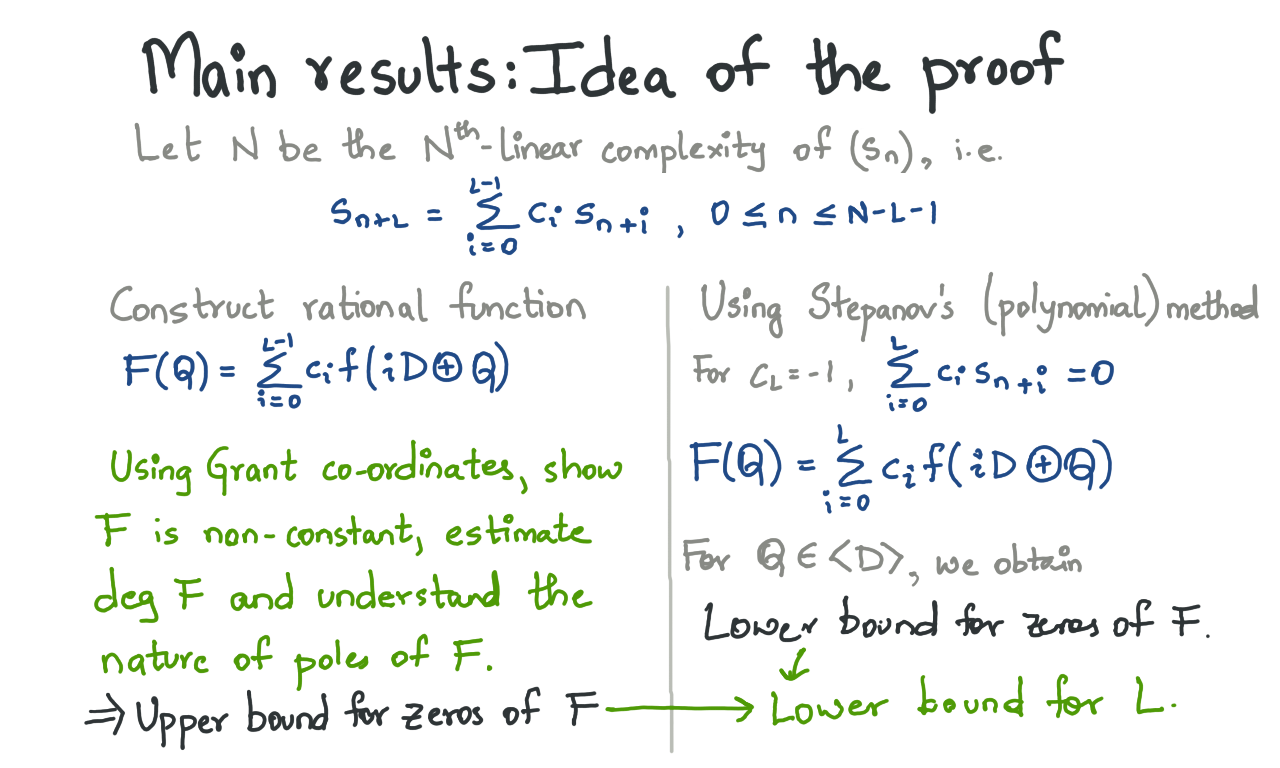 Main results: Idea of the proof
Let N be the Nth-linear complexity of (sn), i.e.
s_{n+L} = \sum_{i=0}^{L-1} c_i s_{n+i} , 0 ≤ n ≤ N-L-1
Construct rational function
F(Q) = \sum_{i=0}^{L-1} c_i f(iD ⊕ Q)
Using Grant co-ordinates, show
F is non-constant, estimate
deg F and understand the
nature of poles of F.
⇒ Upper bound for zeros of F
Using Stepanov's (polynomial) method
For c_L = -1, \sum_{i=0}^{L} c_i s_{n+i} = 0
F(Q) = \sum_{i=0}^{L} c_i f(iD ⊕ Q)
For Q ∈ <D>, we obtain
Lower bound for zeros of F.
Lower bound for L.